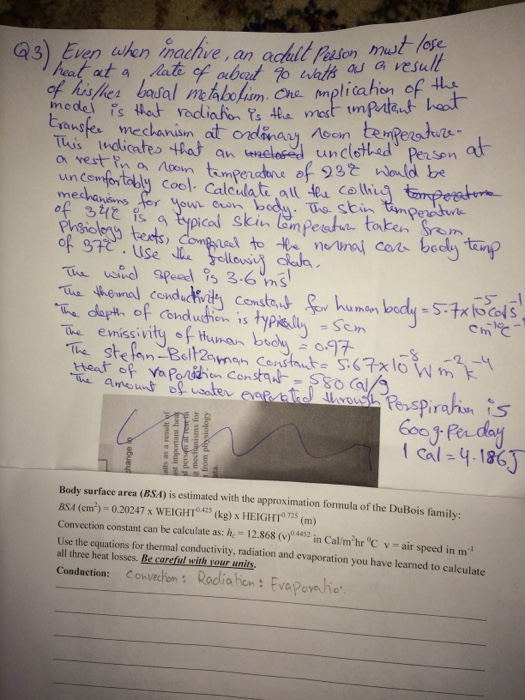 Q3) Even when inactive, an adult Person must lose
heat at a Rate of about 90 watts as a result
of his/her basal metabolism. One implication of the
model is that radiation is the most important heat
transfer mechanism at ordinary room temperature.
This indicates that an unclosed unclothed person at
a rest in a room temperature of 23°C would be
uncomfortably cool. Calculate all the colling temperature
mechanisms for your own body. The skin temperature
of 34°C is a typical skin temperature taken from
Phsiology texts, compared to the normal core body temp
of 37°C. Use the following data.
The wind speed is 3.6 ms⁻¹
The thermal conductivity constant for human body = 5.7x10⁻⁵ Cal s⁻¹
cm⁻¹°C⁻¹
The depth of conduction is typically = 5cm
The emissivity of Human body = 0.97
The Stefan-Boltzaman Constant = 5.67x10⁻⁸ W m⁻² K⁻⁴
Heat of vaporation constant = 580 cal/g
The amount of water evaporated through Perspiration is
600g. Per day
1 Cal = 4.186J
change in
atts as a result of
st important heat
d person at rest in
g mechanisms for
n from physiology
ata.
Body surface area (BSA) is estimated with the approximation formula of the DuBois family:
BSA (cm²) = 0.20247 x WEIGHT⁰·⁴²⁵ (kg) x HEIGHT⁰·⁷²⁵ (m)
Convection constant can be calculate as: hc = 12.868 (v)⁰·⁴⁴⁵² in Cal/m²hr °C v = air speed in m⁻¹
Use the equations for thermal conductivity, radiation and evaporation you have learned to calculate
all three heat losses. Be careful with your units.
Conduction: Convection: Radiation: Evaporatio